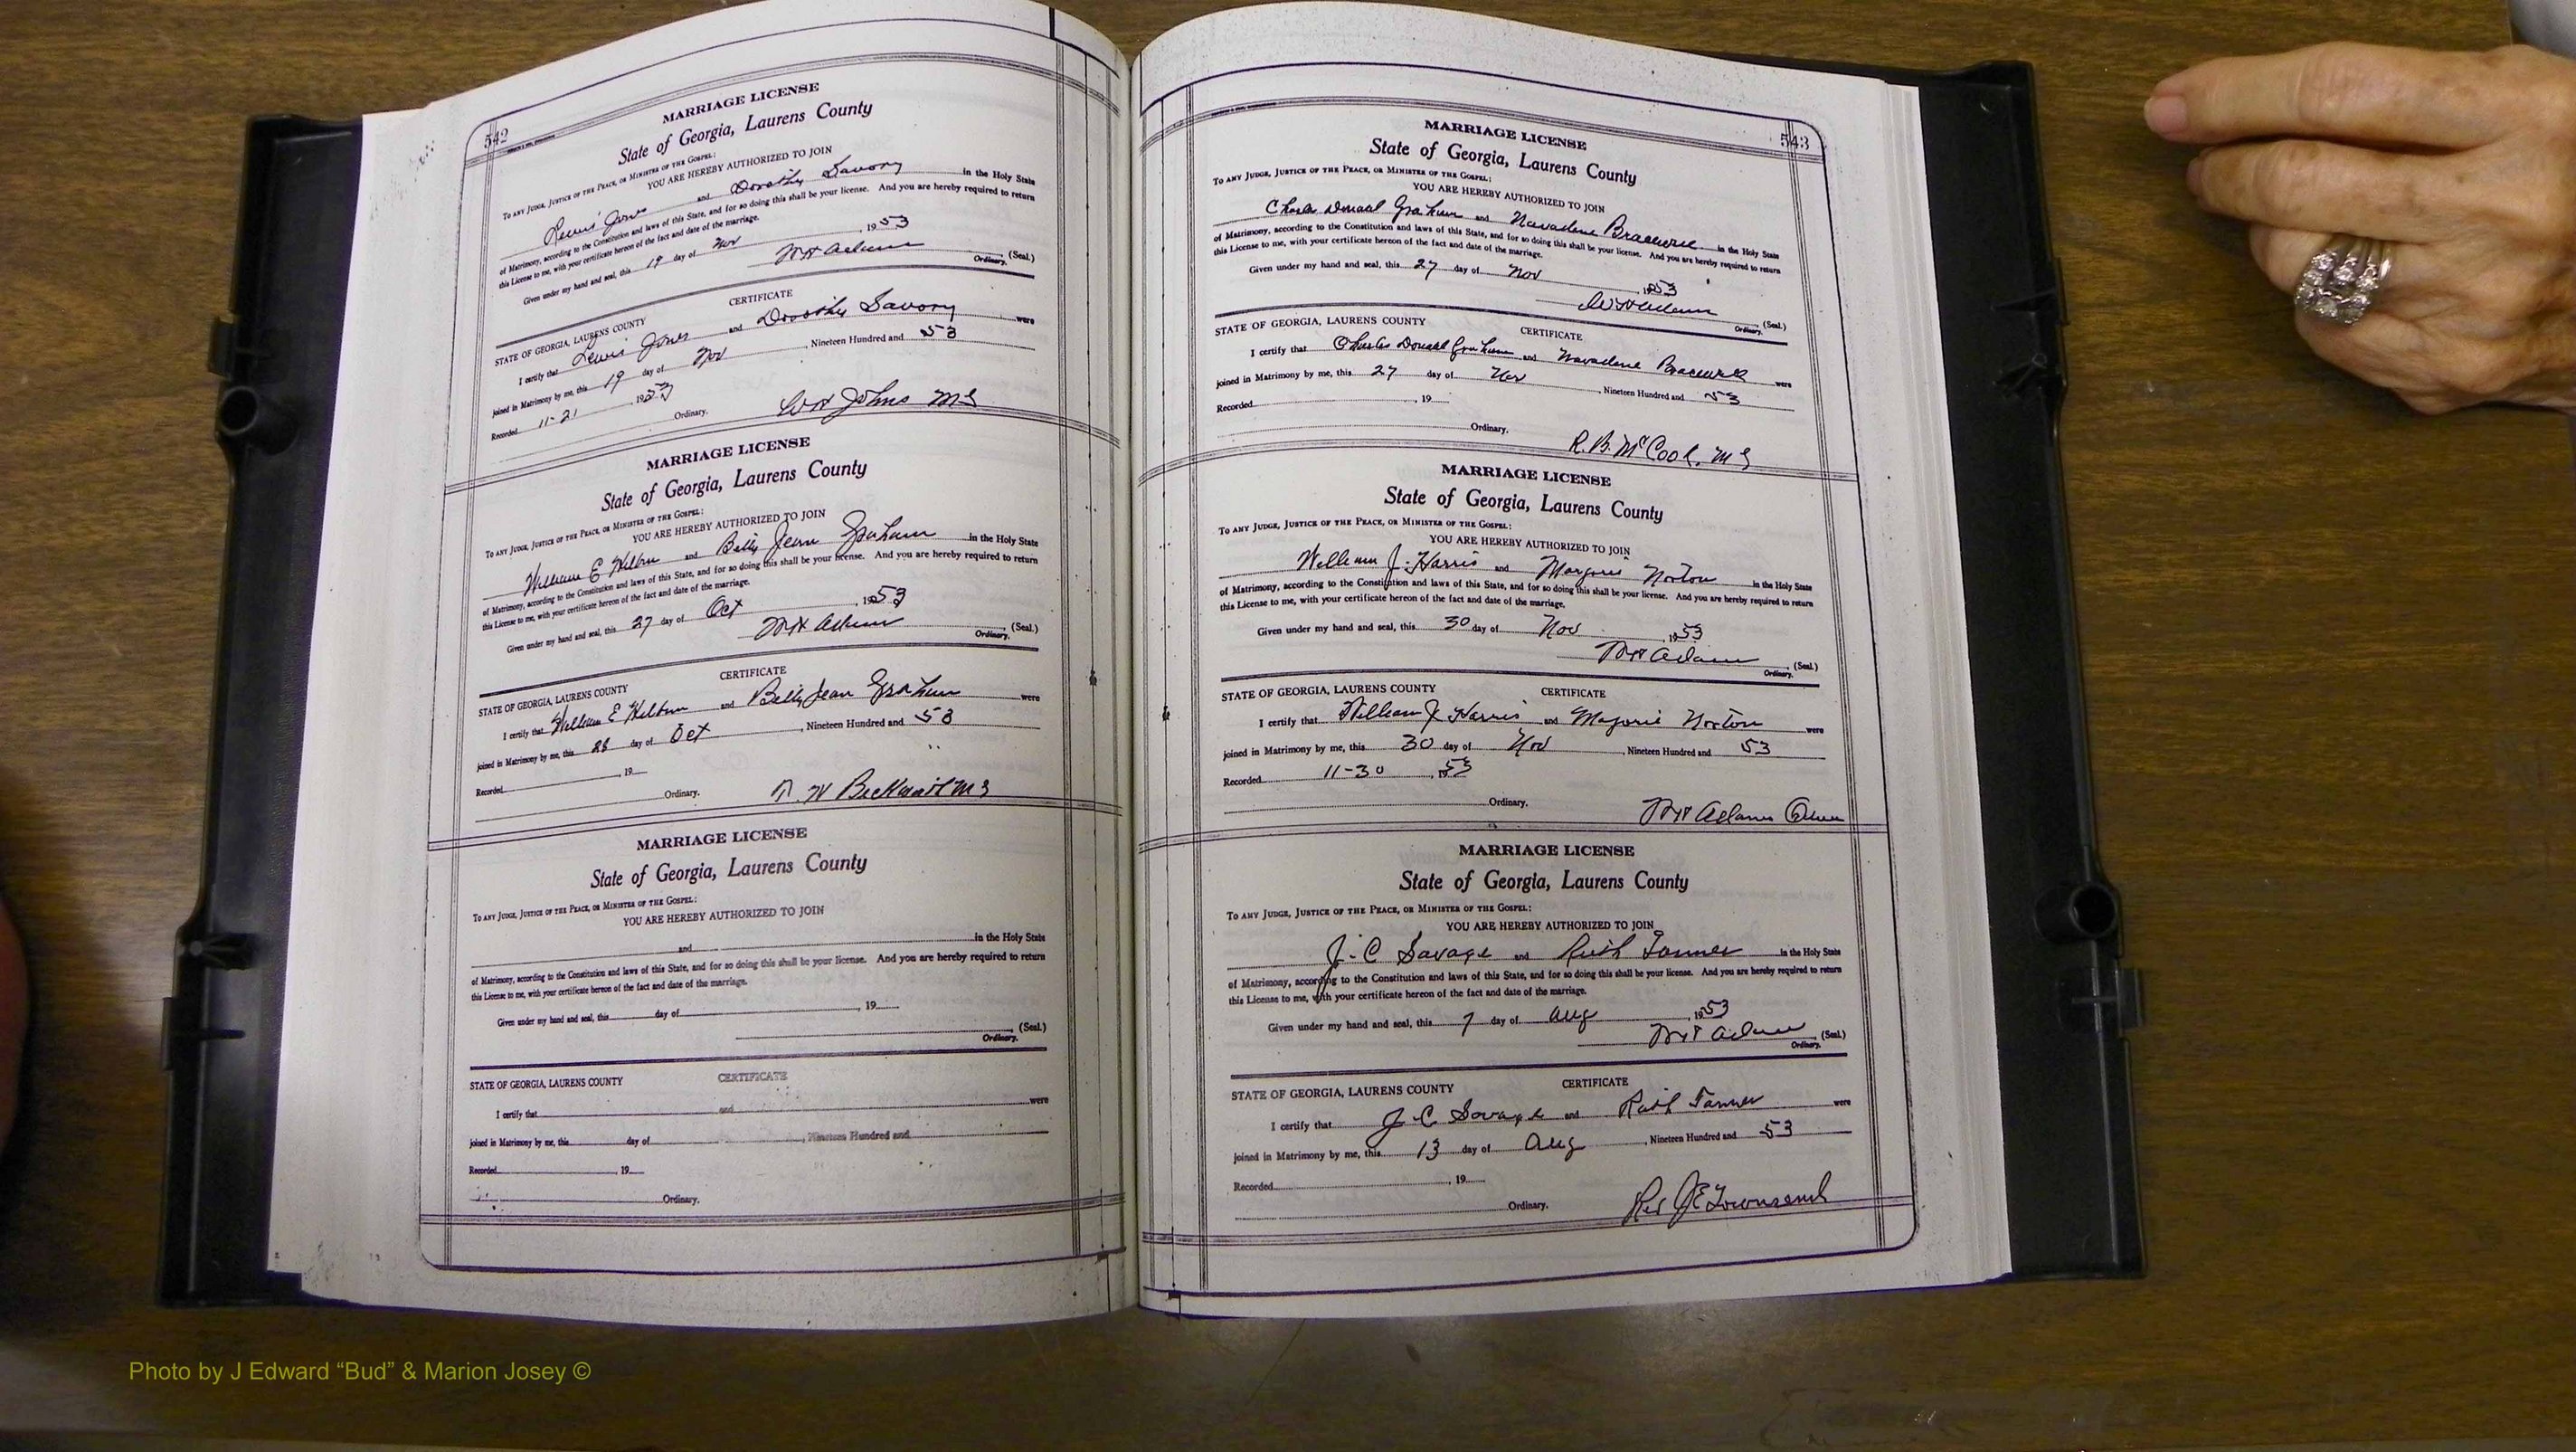 542
MARRIAGE LICENSE
State of Georgia, Laurens County
To any Judge, Justice of the Peace, or Minister of the Gospel:
YOU ARE HEREBY AUTHORIZED TO JOIN
Lewis Jones and Dorothy Savory in the Holy State
of Matrimony, according to the Constitution and laws of this State, and for so doing this shall be your license. And you are hereby required to return
this License to me, with your certificate hereon of the fact and date of the marriage.
Given under my hand and seal, this 19 day of Nov, 1953
(Seal.)
Ordinary.
CERTIFICATE
STATE OF GEORGIA, LAURENS COUNTY
I certify that Lewis Jones and Dorothy Savory were
joined in Matrimony by me, this 19 day of Nov, Nineteen Hundred and 53
Recorded 11-21, 1953
Ordinary.
WH Johns MG
MARRIAGE LICENSE
State of Georgia, Laurens County
To any Judge, Justice of the Peace, or Minister of the Gospel:
YOU ARE HEREBY AUTHORIZED TO JOIN
William E and Betty Jean Graham in the Holy State
of Matrimony, according to the Constitution and laws of this State, and for so doing this shall be your license. And you are hereby required to return
this License to me, with your certificate hereon of the fact and date of the marriage.
Given under my hand and seal, this 27 day of Oct, 1953
(Seal.)
Ordinary.
CERTIFICATE
STATE OF GEORGIA, LAURENS COUNTY
I certify that William E and Betty Jean Graham were
joined in Matrimony by me, this 28 day of Oct, Nineteen Hundred and 53
Recorded, 19
Ordinary.
MARRIAGE LICENSE
State of Georgia, Laurens County
To any Judge, Justice of the Peace, or Minister of the Gospel:
YOU ARE HEREBY AUTHORIZED TO JOIN
and in the Holy State
of Matrimony, according to the Constitution and laws of this State, and for so doing this shall be your license. And you are hereby required to return
this License to me, with your certificate hereon of the fact and date of the marriage.
Given under my hand and seal, this day of, 19
(Seal.)
Ordinary.
CERTIFICATE
STATE OF GEORGIA, LAURENS COUNTY
I certify that and were
joined in Matrimony by me, this day of, Nineteen Hundred and
Recorded, 19
Ordinary.
543
MARRIAGE LICENSE
State of Georgia, Laurens County
To any Judge, Justice of the Peace, or Minister of the Gospel:
YOU ARE HEREBY AUTHORIZED TO JOIN
Charles Donald Graham and in the Holy State
of Matrimony, according to the Constitution and laws of this State, and for so doing this shall be your license. And you are hereby required to return
this License to me, with your certificate hereon of the fact and date of the marriage.
Given under my hand and seal, this 27 day of Nov, 1953
(Seal.)
Ordinary.
CERTIFICATE
STATE OF GEORGIA, LAURENS COUNTY
I certify that Charles Donald Graham and were
joined in Matrimony by me, this 27 day of Nov, Nineteen Hundred and 53
Recorded, 19
Ordinary.
R.B. McCook, MG
MARRIAGE LICENSE
State of Georgia, Laurens County
To any Judge, Justice of the Peace, or Minister of the Gospel:
YOU ARE HEREBY AUTHORIZED TO JOIN
William J. Harris and Marjorie Norton in the Holy State
of Matrimony, according to the Constitution and laws of this State, and for so doing this shall be your license. And you are hereby required to return
this License to me, with your certificate hereon of the fact and date of the marriage.
Given under my hand and seal, this 30 day of Nov, 1953
(Seal.)
Ordinary.
CERTIFICATE
STATE OF GEORGIA, LAURENS COUNTY
I certify that William J. Harris and Marjorie Norton were
joined in Matrimony by me, this 30 day of Nov, Nineteen Hundred and 53
Recorded 11-30, 53
Ordinary.
MARRIAGE LICENSE
State of Georgia, Laurens County
To any Judge, Justice of the Peace, or Minister of the Gospel:
YOU ARE HEREBY AUTHORIZED TO JOIN
J. C Savage and Ruth Tanner in the Holy State
of Matrimony, according to the Constitution and laws of this State, and for so doing this shall be your license. And you are hereby required to return
this License to me, with your certificate hereon of the fact and date of the marriage.
Given under my hand and seal, this 7 day of Aug, 1953
(Seal.)
Ordinary.
CERTIFICATE
STATE OF GEORGIA, LAURENS COUNTY
I certify that J. C Savage and Ruth Tanner were
joined in Matrimony by me, this 13 day of Aug, Nineteen Hundred and 53
Recorded, 19
Ordinary.
Rev JE Townsend
Photo by J Edward “Bud” & Marion Josey ©